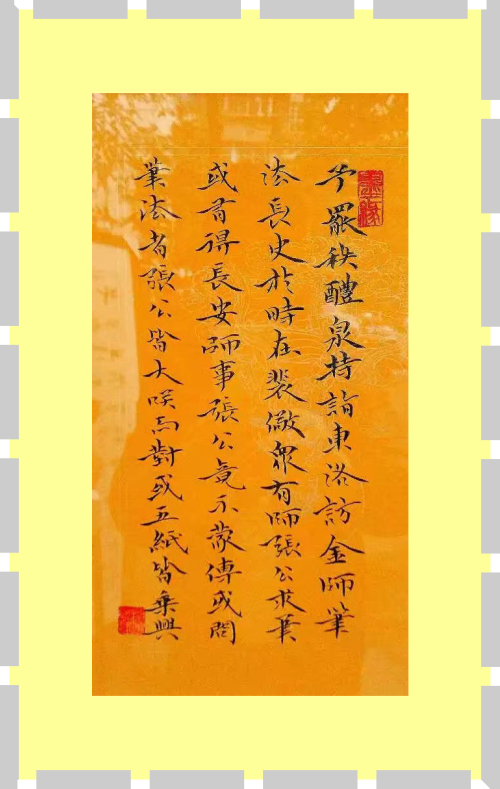 予罷秩醴泉持詣東洛訪金師筆
法長史於時在裴儆眾有師張公求筆
或有得長安師事張公竟不蒙傳或問
筆法者張公皆大咲而對或五紙皆乘興